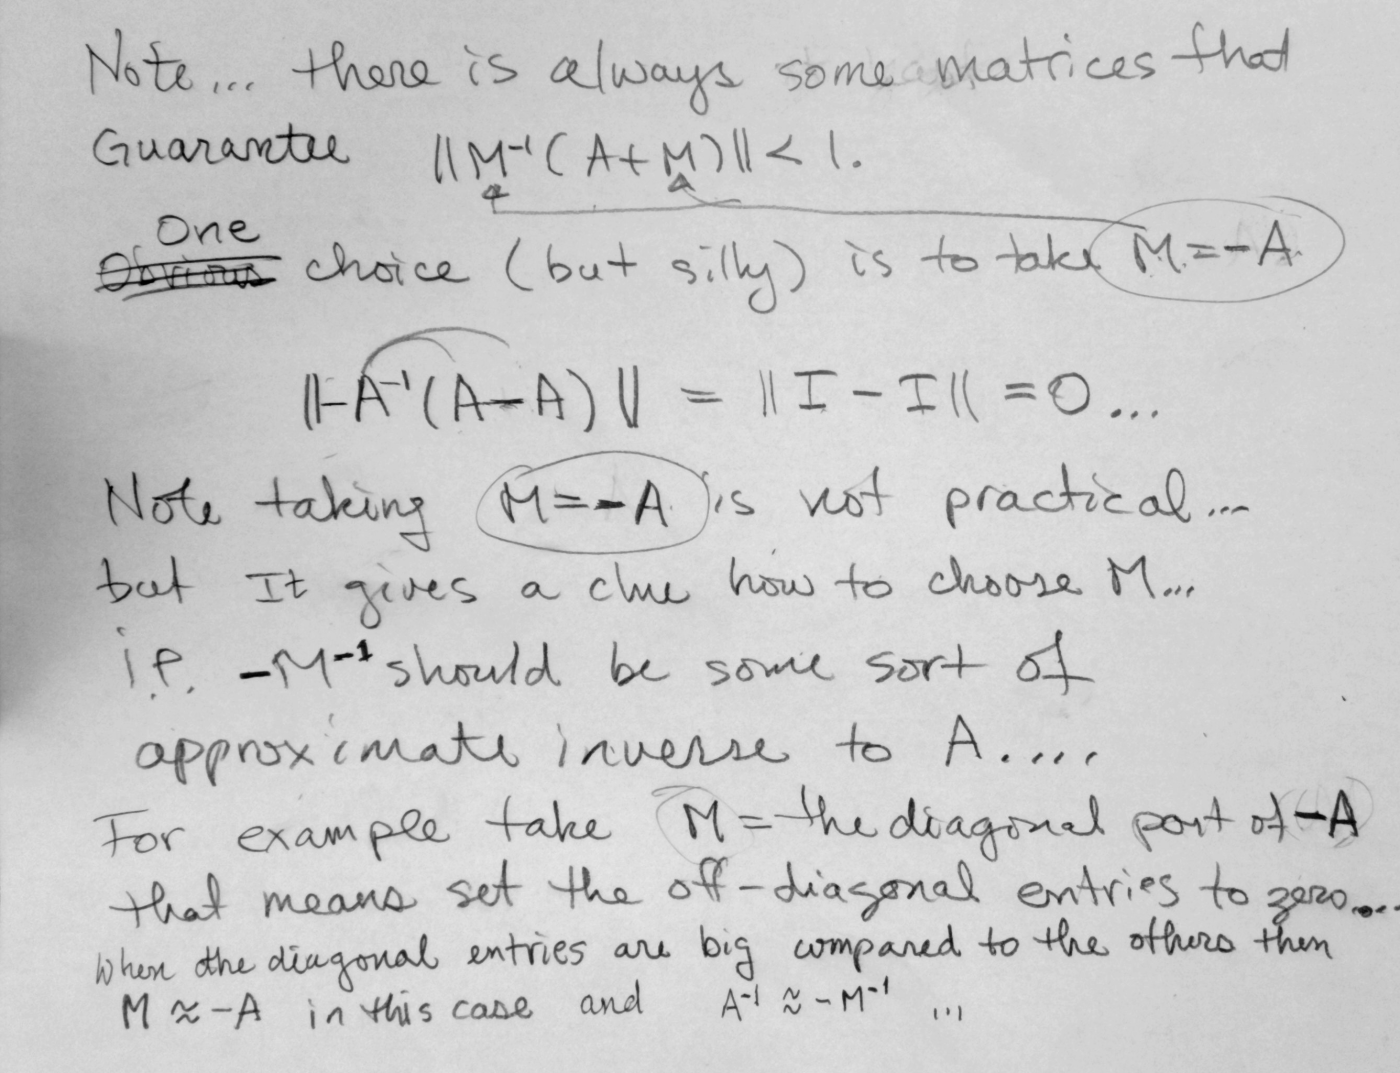 Note... there is always some matrices that
Guarantee ||M⁻¹(A+M)|| < 1.
One
Obvious choice (but silly) is to take M=-A.
||-A⁻¹(A-A)|| = ||I-I|| = 0...
Note taking M=-A is not practical...
but It gives a clue how to choose M...
i.e. -M⁻¹ should be some sort of
approximate inverse to A.....
For example take M = the diagonal part of -A
that means set the off-diagonal entries to zero....
When the diagonal entries are big compared to the others then
M ≈ -A in this case and A⁻¹ ≈ -M⁻¹ ...